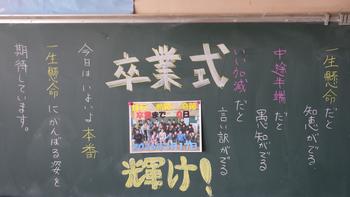 一生懸命だと
知恵がでる
中途半端だと
愚知がでる
いい加減だと
言い訳がでる
卒業式
卒業まで 0日
輝け!
今日はいよいよ本番
一生懸命にがんばる姿を
期待しています。